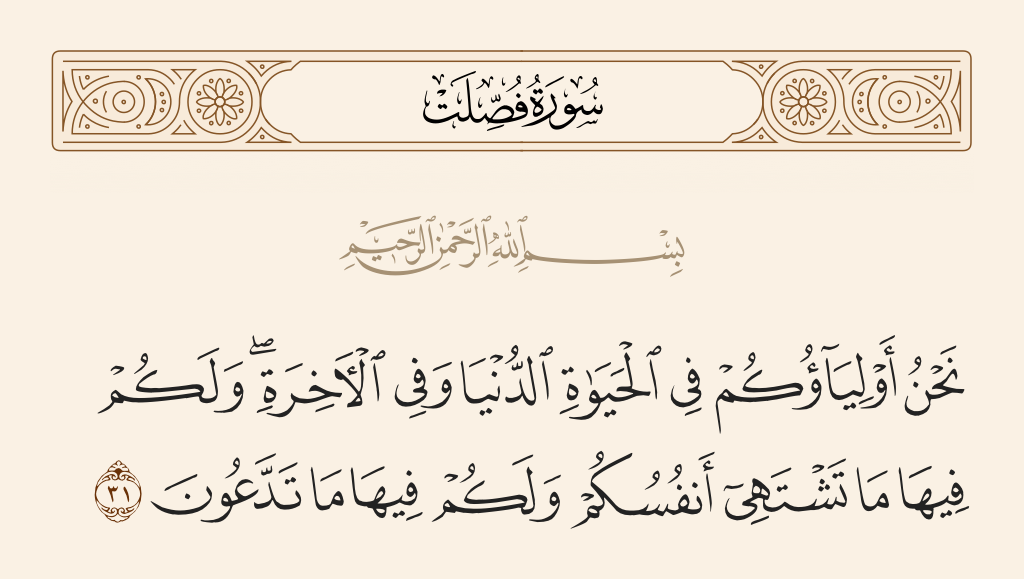 سُورَةُ فُصِّلَتْ
بِسْمِ ٱللَّهِ ٱلرَّحْمَٰنِ ٱلرَّحِيمِ
نَحْنُ أَوْلِيَآؤُكُمْ فِى ٱلْحَيَوٰةِ ٱلدُّنْيَا وَفِى ٱلْـَٔاخِرَةِ ۖ وَلَكُمْ
فِيهَا مَا تَشْتَهِىٓ أَنفُسُكُمْ وَلَكُمْ فِيهَا مَا تَدَّعُونَ ٣١